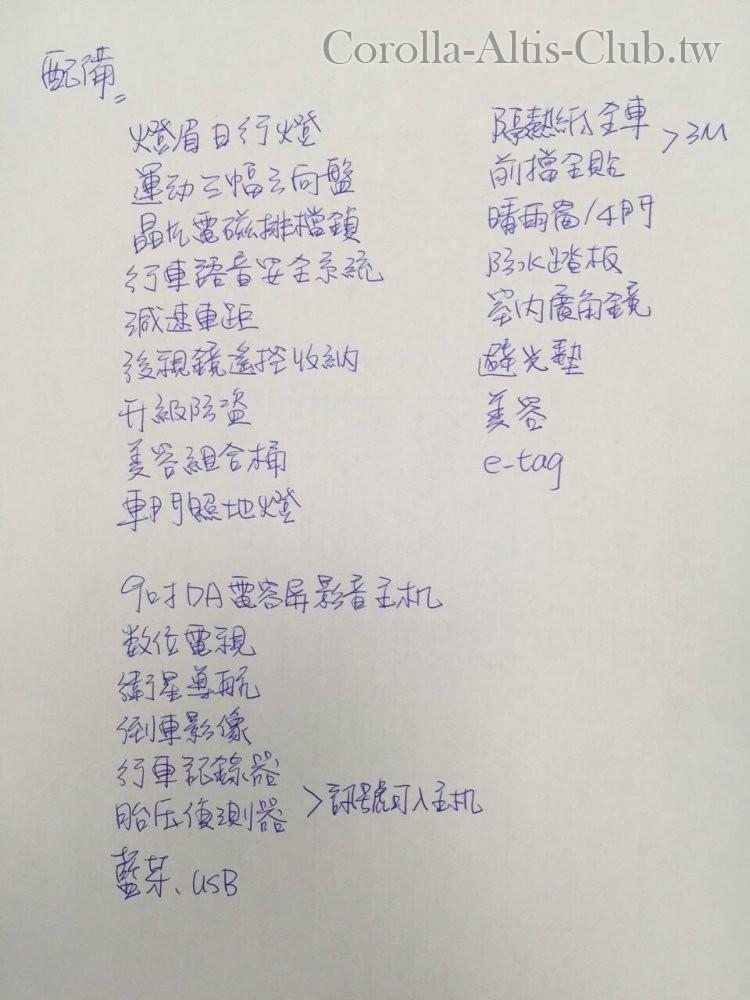 Corolla-Altis-Club.tw
配備
燈眉日行燈
運动三幅方向盤
晶片電磁排檔鎖
行車語音安全系統
減速車距
後視鏡遙控收納
升級防盜
美容組合桶
車門照地燈
9吋DA電容屏影音主机
数位電視
衛星導航
倒車影像
行車記錄器
胎压偵測器 >訊號可入主机
藍芽、USB
隔熱紙全車
前擋全貼 >3M
晴雨窗/4門
防水踏板
室内廣角鏡
避光墊
美容
e-tag